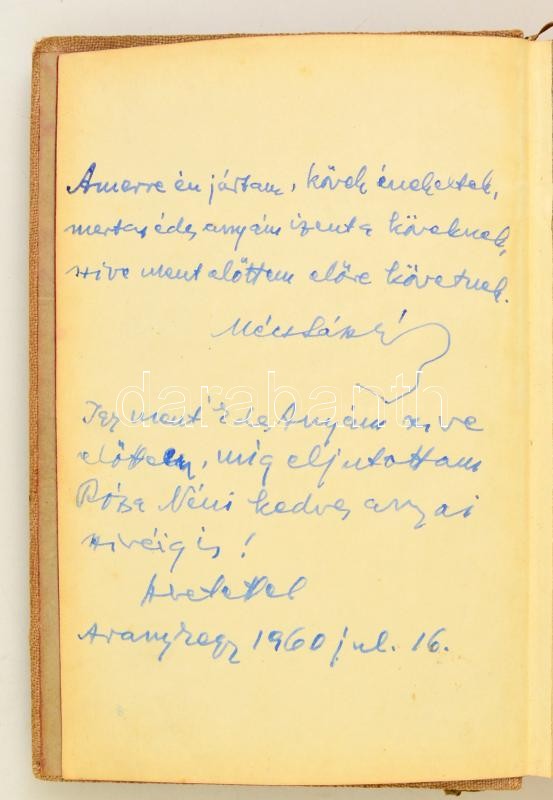 Amerre én jártam, kövek énekeltek,
mert az édes anyám izent a köveknek,
szive ment előttem előre követnek.
Mécs László
darabanth
Igy ment Édes Anyám szive
előttem, míg eljutottam
Róza Néni kedves anyai
szivéig is!
szeretettel
1960 jul. 16.